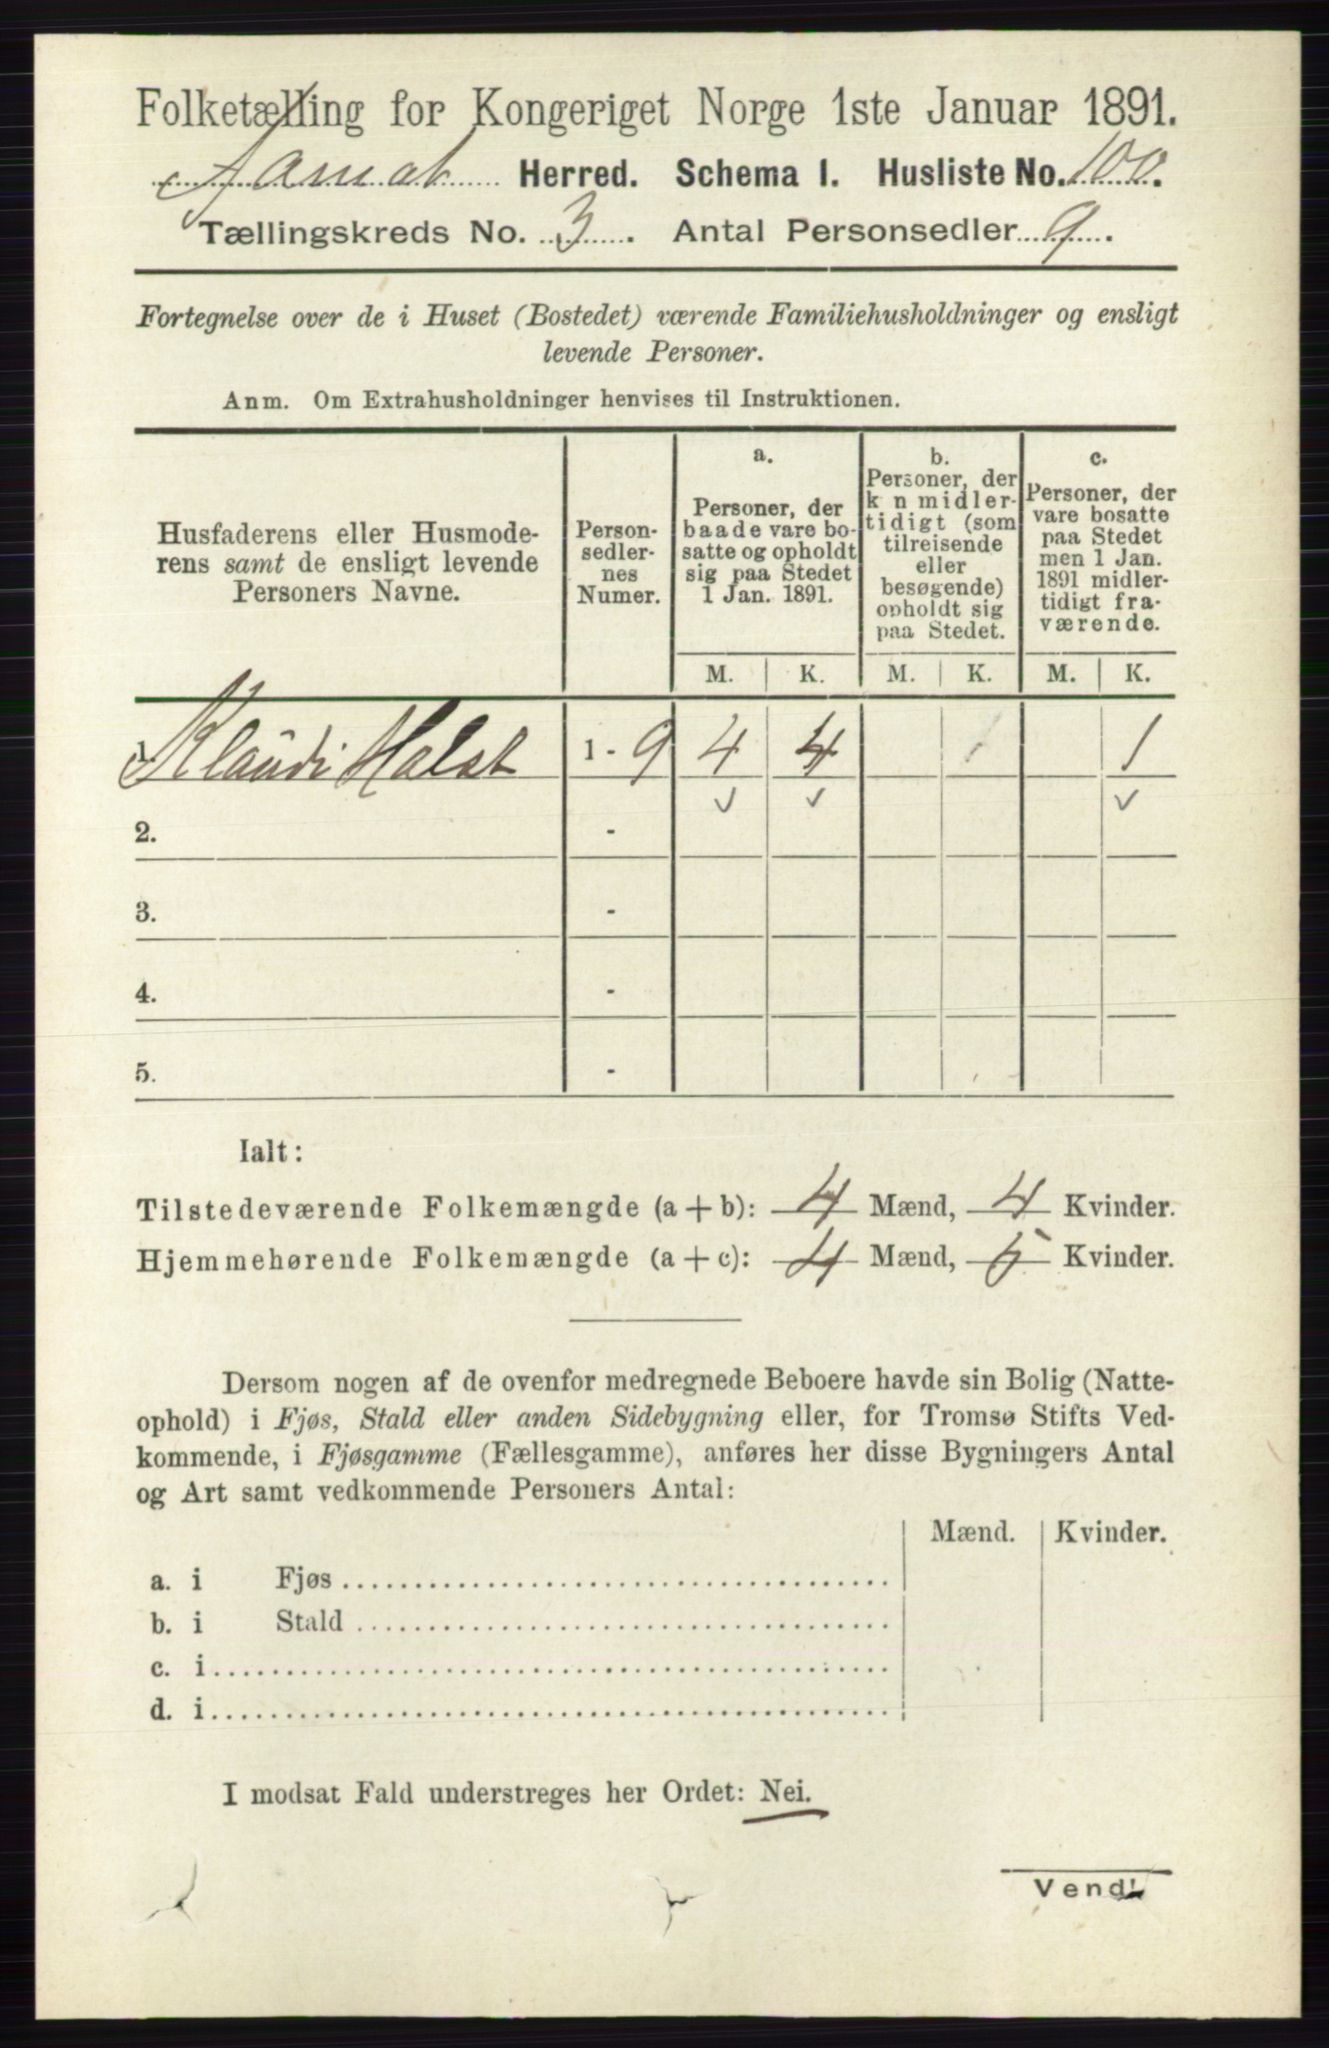 Folketælling for Kongeriget Norge 1ste Januar 1891.
Herred. Schema I. Husliste No. 100.
Tællingskreds No. 3. Antal Personsedler 9.
Fortegnelse over de i Huset (Bostedet) værende Familiehusholdninger og ensligt
levende Personer.
Anm. Om Extrahusholdninger henvises til Instruktionen.
Husfaderens eller Husmode-
rens samt de ensligt levende
Personers Navne.
Person-
sedler-
nes
Numer.
a.
Personer, der
baade vare bo-
satte og opholdt
sig paa Stedet
1 Jan. 1891.
b.
Personer, der
k n midler-
tidigt (som
tilreisende
eller
besøgende)
opholdt sig
paa Stedet.
c.
Personer, der
vare bosatte
paa Stedet
men 1 Jan.
1891 midler-
tidigt fra-
værende.
M. K. M. K. M. K.
Klaudi Halst 1 - 9 4 4 1
2. -
3. -
4. -
5. -
Ialt:
Tilstedeværende Folkemængde (a + b): 4 Mænd, 4 Kvinder.
Hjemmehørende Folkemængde (a + c): 4 Mænd, 5 Kvinder.
Dersom nogen af de ovenfor medregnede Beboere havde sin Bolig (Natte-
ophold) i Fjøs, Stald eller anden Sidebygning eller, for Tromsø Stifts Ved-
kommende, i Fjøsgamme (Fællesgamme), anføres her disse Bygningers Antal
og Art samt vedkommende Personers Antal:
Mænd. Kvinder.
a. i Fjøs
b. i Stald
c. i
d. i
I modsat Fald understreges her Ordet: Nei.
Vend!